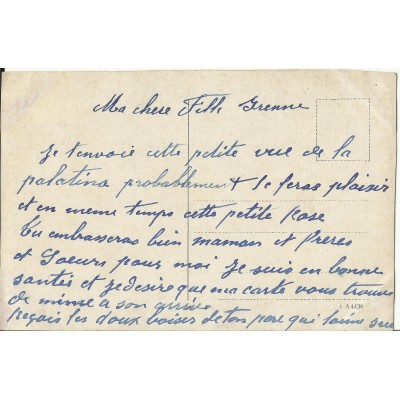 Ma chere Fille Irenne
Je t'envoie cette petite vue de la
palatina probablement te feras plaisir
et en meme temps cette petite Rose
Tu embrasseras bien maman et Freres
et Soeurs pour moi Je suis en bonne
santés et Je desire que ma carte vous trouve
de mime a son arrive
Reçois les doux baiser de ton pere qui t'aime
A 4436